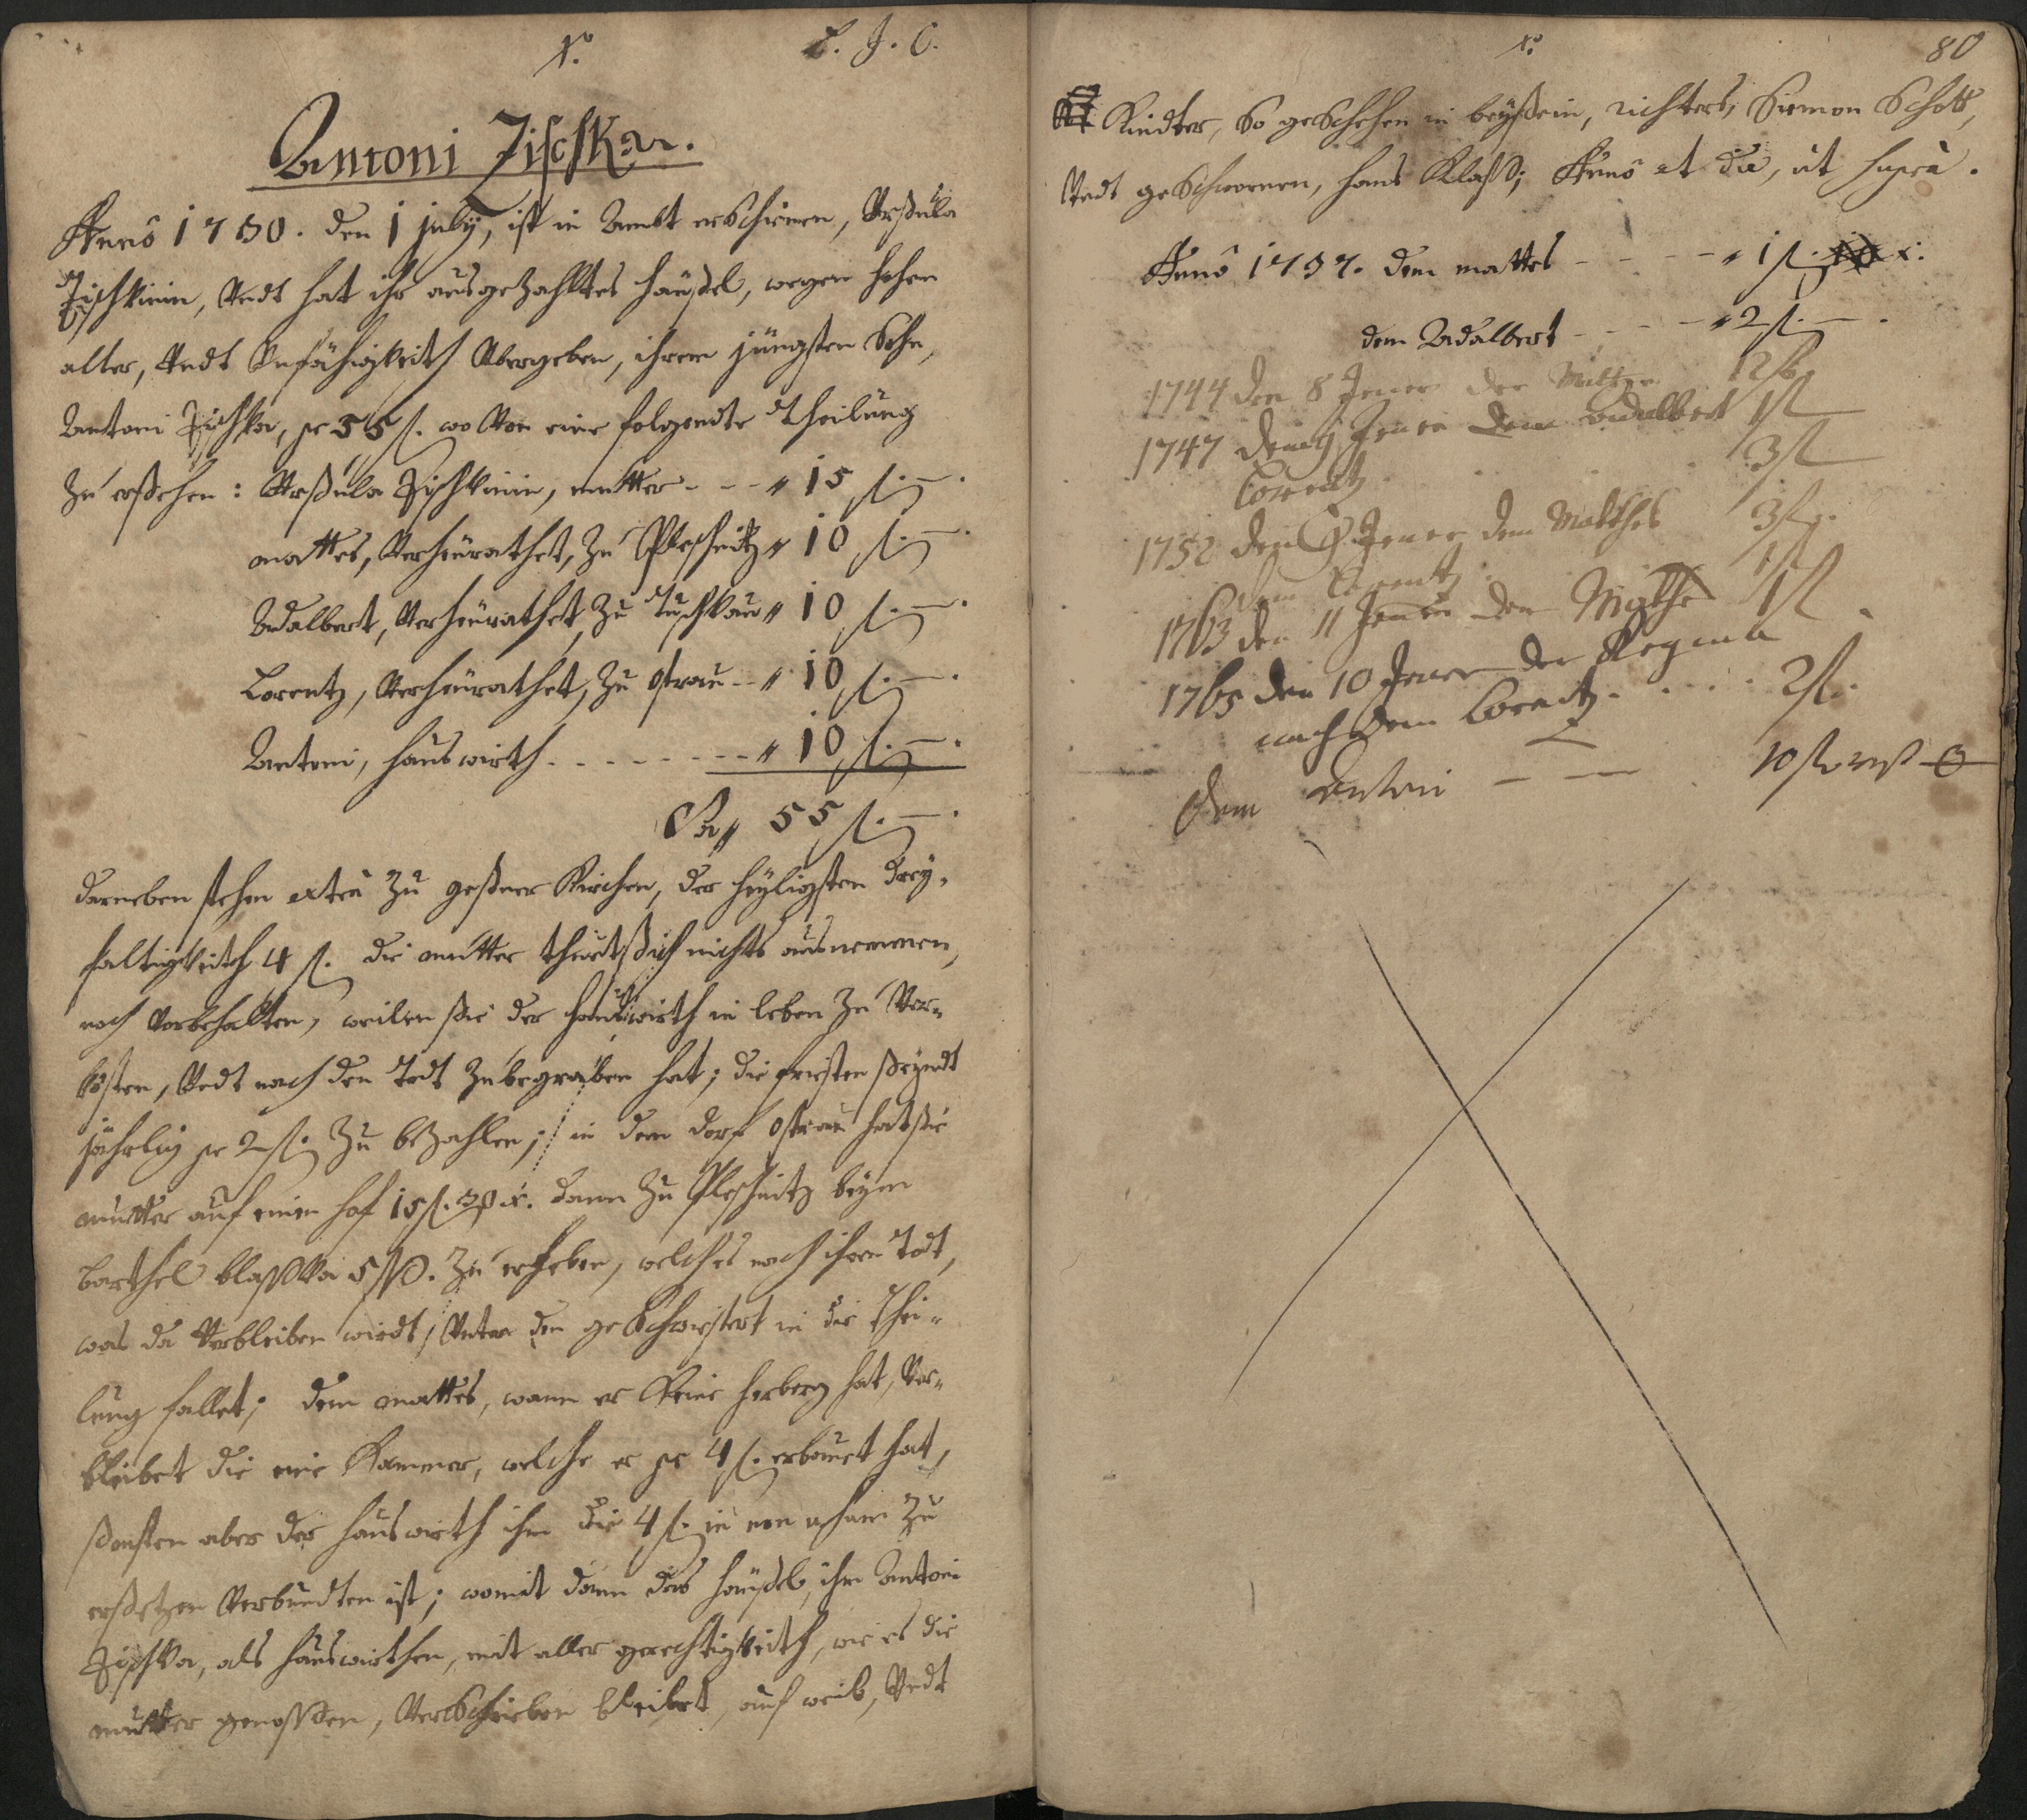 N.º L. J. C.
Antoni Zischka.
Anno 1730. den 1 july, ist in Ambt erschienen, Vrßula
Zischkinin, Vndt hat ihr ausgezahltes häußel, wegen hohen
alter, Vndt Vnfähigkeith Vbergeben, ihrem jüngsten Sohn,
Antoni Zischka, pr 55 f. wo Von eine folgendte Theilung
zu erßehen: Vrßula Zischkinin, mutter - - - " 15 f. —.
mattes, Verheürathet, zu Pleschnitz " 10 f. —.
Adalbert, Verheürathet, zu Tuschkau " 10 f. —.
Lorentz, Verheürathet, zu Ostrau - - " 10 f. —.
Antoni, hauswirth - - - - - - - - " 10 f. —.
Sa " 55 f. —.
darneben stehen extra zu geßner Kirchen, der heyligsten Drey-
faltigkeith 4 f. die mutter thuet ßich nichts ausnemmen,
noch Vorbehalten, weilen ßie der hauswirth in leben zu Ver-
kosten, Vndt nach den Todt zubegraben hat; die fristen ßeyndt
jährlig pr 2 f. zu bezahlen; in dem dorf Ostrau hat ßie
mutter auf einen hof 15 f. 30 x. dann zu Pleschnitz beym
barthel blaßka 5 ßß. zu erheben, welches nach ihren Todt,
was da Verbleiben wirdt, Vnter den geschwistert in die thei-
lung fallet; dem mattes, wann er Keine herberg hat, Ver-
bleibet die eine Kammer, welche er pr 4 f. erbauet hat,
ßonsten aber der hauswirth ihm die 4 f. in zu
erßetzen Verbundten ist; womit dann das häußel, ihm Antoni
Zischka, als hauswirthen, mit aller gerechtigkeith, wie es die
mutter genossen, Verschrieben bleibet, auf weib, Vndt
N.º 80
Kindter, so geschehen in beyßein, richters, Siemon Schott,
Vndt geschwornen, hans Klaß; Anno et die, ut supra.
Anno 1737. dem mattes - - - - - " 1 f. x.
dem Adalbert - - - - - " 2 f. —.
1744 den 8 Jener
1747 den 9 Jener dem Adalbert 1 f
Lorentz 3 f
1752 den 9 Jener dem Matthes 3 f
dem Lorentz 1 f
1763 den 11 Jener den Mathe 1 f.
1765 den 10 Jener der Regina
nach dem Lorentz . . . . . 2 f.
dem Antoni — — 10 f rest 0